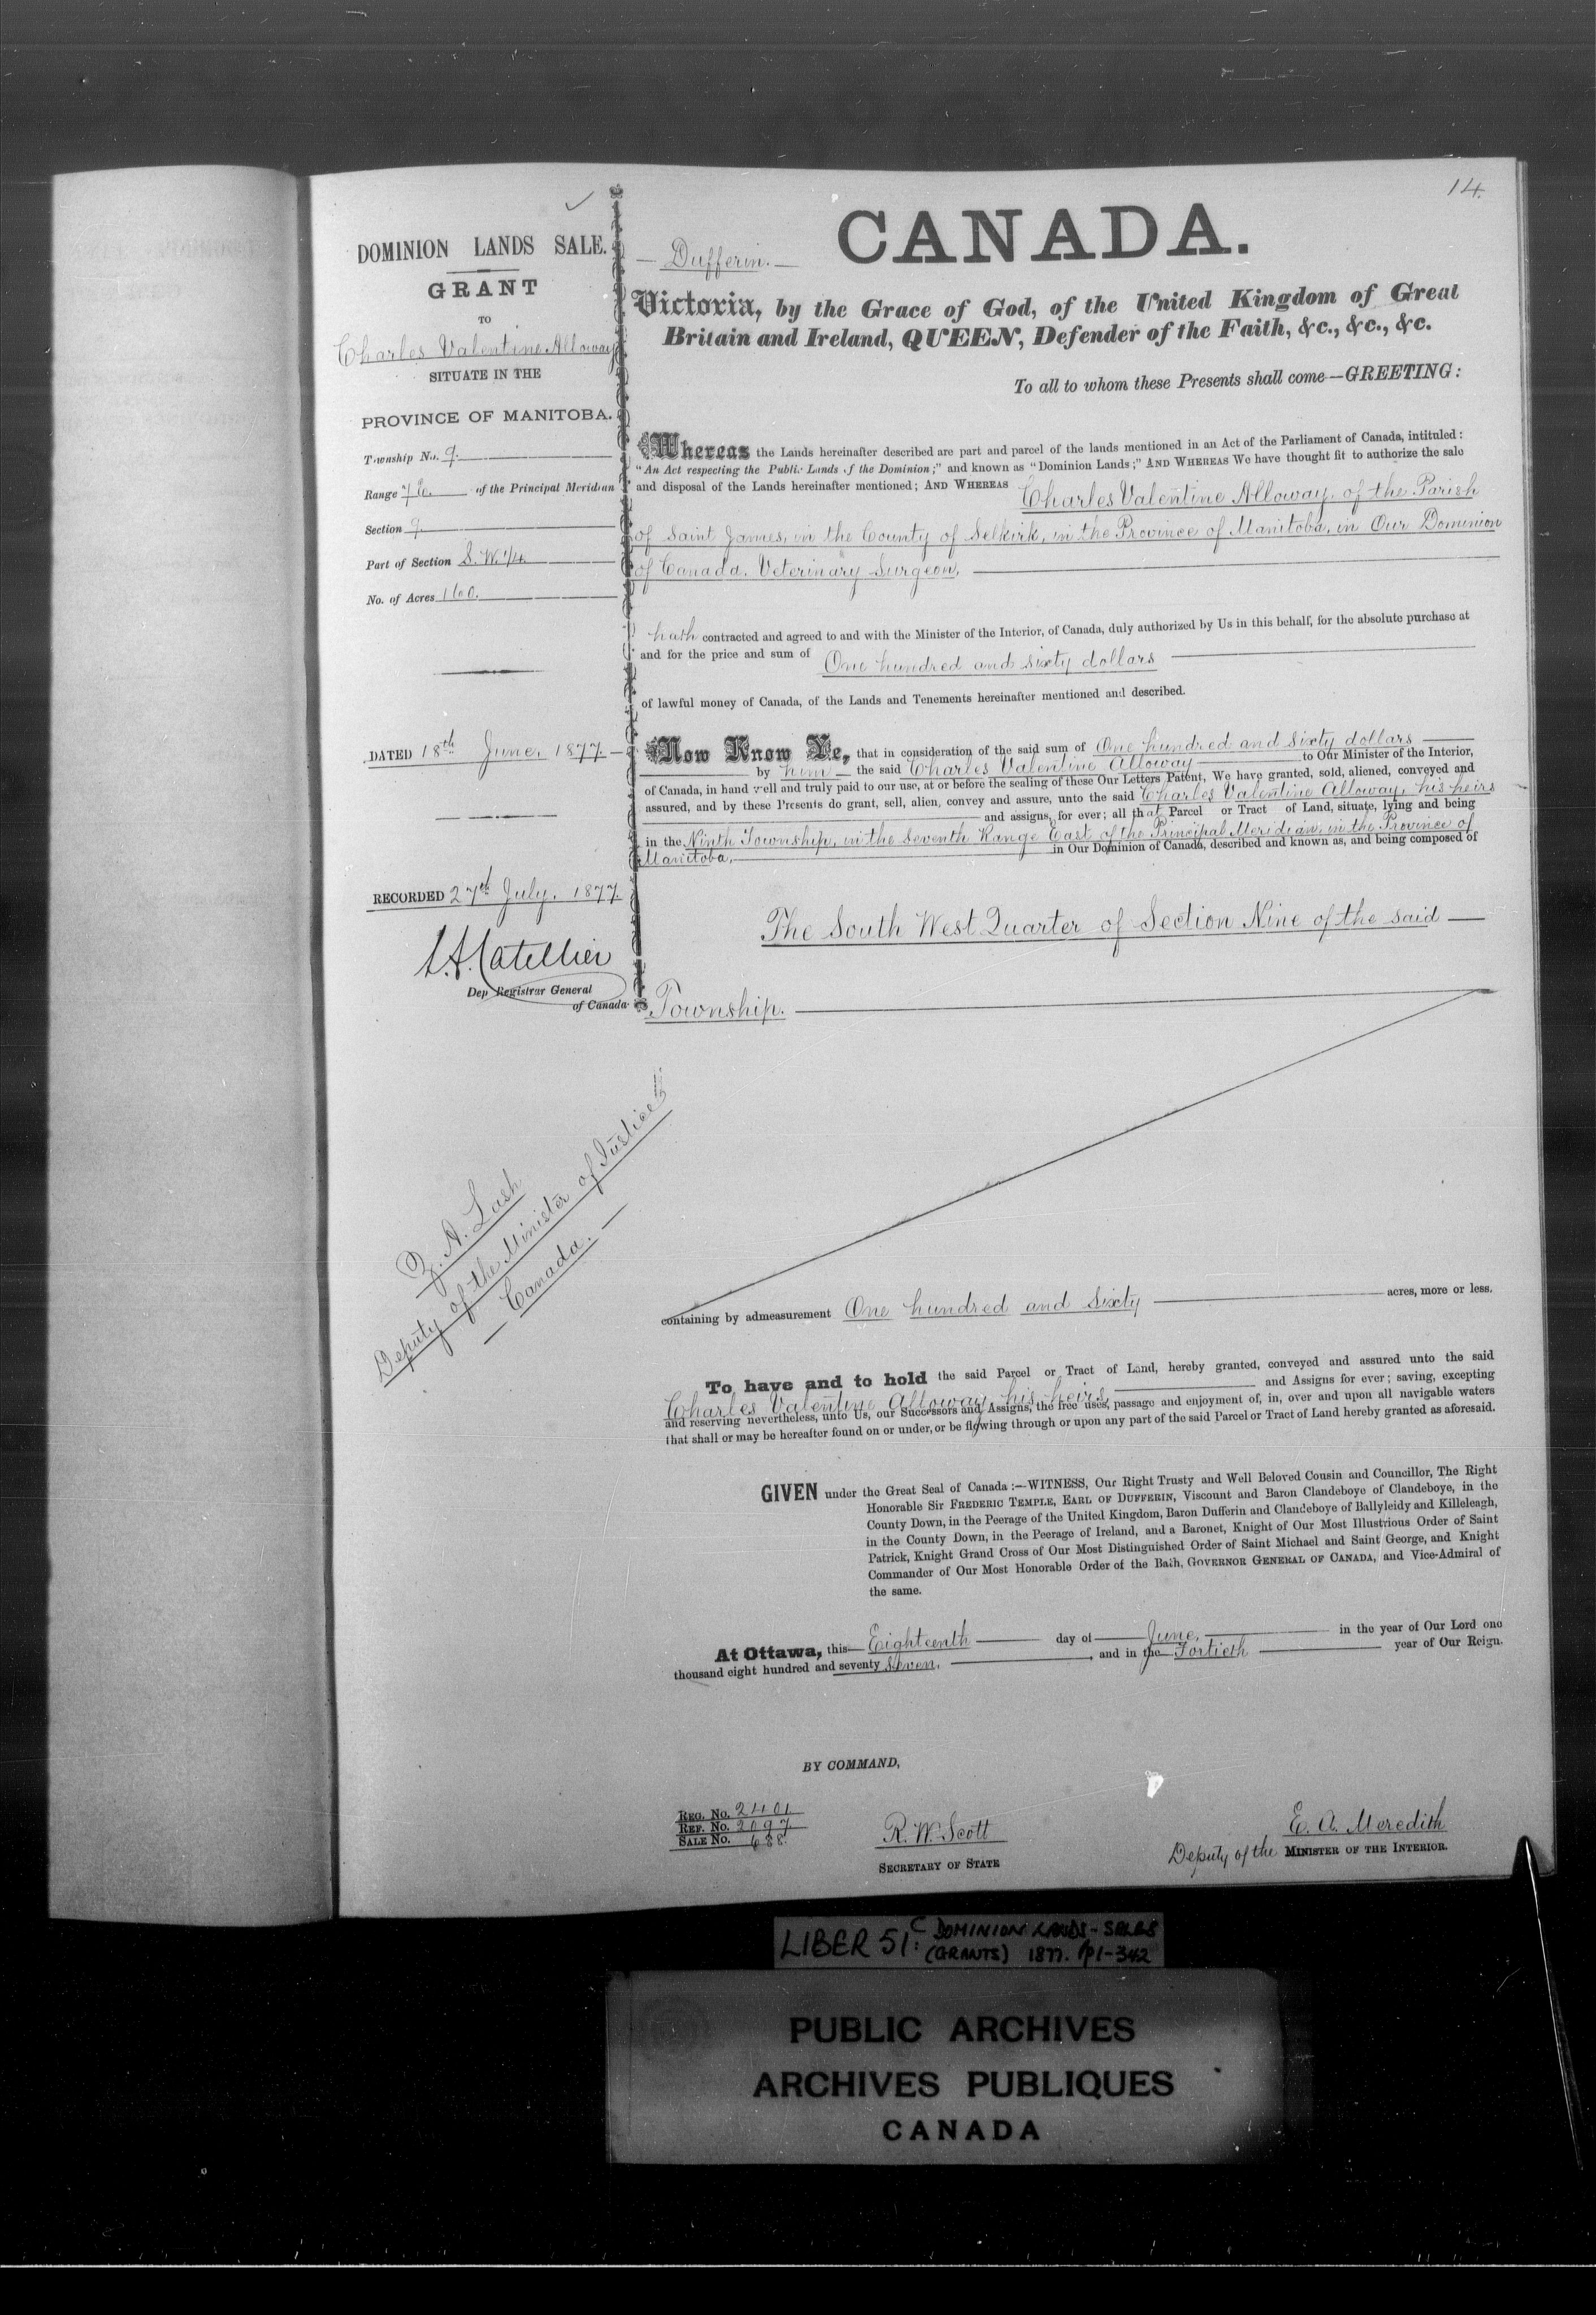 14.
DOMINION LANDS SALE.
GRANT
TO
Charles Valentine Alloway
SITUATE IN THE
PROVINCE OF MANITOBA.
Township No. 9.
Range 7 E. of the Principal Meridian
Section 9.
Part of Section S. W. 1/4.
No. of Acres 160.
DATED 18th June, 1877.
RECORDED 27th July, 1877.
L. A. Catellier
Dep Registrar General
of Canada
Z. A. Lash
Deputy of the Minister of Justice
Canada.
CANADA.
Dufferin.
Victoria, by the Grace of God, of the United Kingdom of Great
Britain and Ireland, QUEEN, Defender of the Faith, &c., &c., &c.
To all to whom these Presents shall come—GREETING:
Whereas the Lands hereinafter described are part and parcel of the lands mentioned in an Act of the Parliament of Canada, intituled:
"An Act respecting the Public Lands of the Dominion;" and known as "Dominion Lands;" AND WHEREAS We have thought fit to authorize the sale
and disposal of the Lands hereinafter mentioned; AND WHEREAS Charles Valentine Alloway, of the Parish
of Saint James, in the County of Selkirk, in the Province of Manitoba, in Our Dominion
of Canada, Veterinary Surgeon,
hath contracted and agreed to and with the Minister of the Interior, of Canada, duly authorized by Us in this behalf, for the absolute purchase at
and for the price and sum of One hundred and sixty dollars
of lawful money of Canada, of the Lands and Tenements hereinafter mentioned and described.
Now Know Ye, that in consideration of the said sum of One hundred and sixty dollars
by him the said Charles Valentine Alloway to Our Minister of the Interior,
of Canada, in hand well and truly paid to our use, at or before the sealing of these Our Letters Patent, We have granted, sold, aliened, conveyed and
assured, and by these Presents do grant, sell, alien, convey and assure, unto the said Charles Valentine Alloway, his heirs
and assigns, for ever; all that Parcel or Tract of Land, situate, lying and being
in the Ninth Township, in the Seventh Range East of the Principal Meridian, in the Province of
Manitoba, in Our Dominion of Canada, described and known as, and being composed of
The South West Quarter of Section Nine of the said
Township.
containing by admeasurement One hundred and sixty acres, more or less.
To have and to hold the said Parcel or Tract of Land, hereby granted, conveyed and assured unto the said
Charles Valentine Alloway, his heirs and Assigns for ever; saving, excepting
and reserving nevertheless, unto Us, our Successors and Assigns, the free uses, passage and enjoyment of, in, over and upon all navigable waters
that shall or may be hereafter found on or under, or be flowing through or upon any part of the said Parcel or Tract of Land hereby granted as aforesaid.
GIVEN under the Great Seal of Canada:—WITNESS, Our Right Trusty and Well Beloved Cousin and Councillor, The Right
Honorable Sir FREDERIC TEMPLE, EARL OF DUFFERIN, Viscount and Baron Clandeboye of Clandeboye, in the
County Down, in the Peerage of the United Kingdom, Baron Dufferin and Clandeboye of Ballyleidy and Killeleagh,
in the County Down, in the Peerage of Ireland, and a Baronet, Knight of Our Most Illustrious Order of Saint
Patrick, Knight Grand Cross of Our Most Distinguished Order of Saint Michael and Saint George, and Knight
Commander of Our Most Honorable Order of the Bath, GOVERNOR GENERAL OF CANADA, and Vice-Admiral of
the same.
At Ottawa, this Eighteenth day of June, in the year of Our Lord one
thousand eight hundred and seventy seven, and in the Fortieth year of Our Reign.
BY COMMAND,
REG. No. 2401
REF. No. 2097.
SALE No. 688.
R. W. Scott
SECRETARY OF STATE
E. A. Meredith
Deputy of the MINISTER OF THE INTERIOR.
LIBER 51: C DOMINION LANDS - SALES
(GRANTS) 1877. pp1-342
PUBLIC ARCHIVES
ARCHIVES PUBLIQUES
CANADA